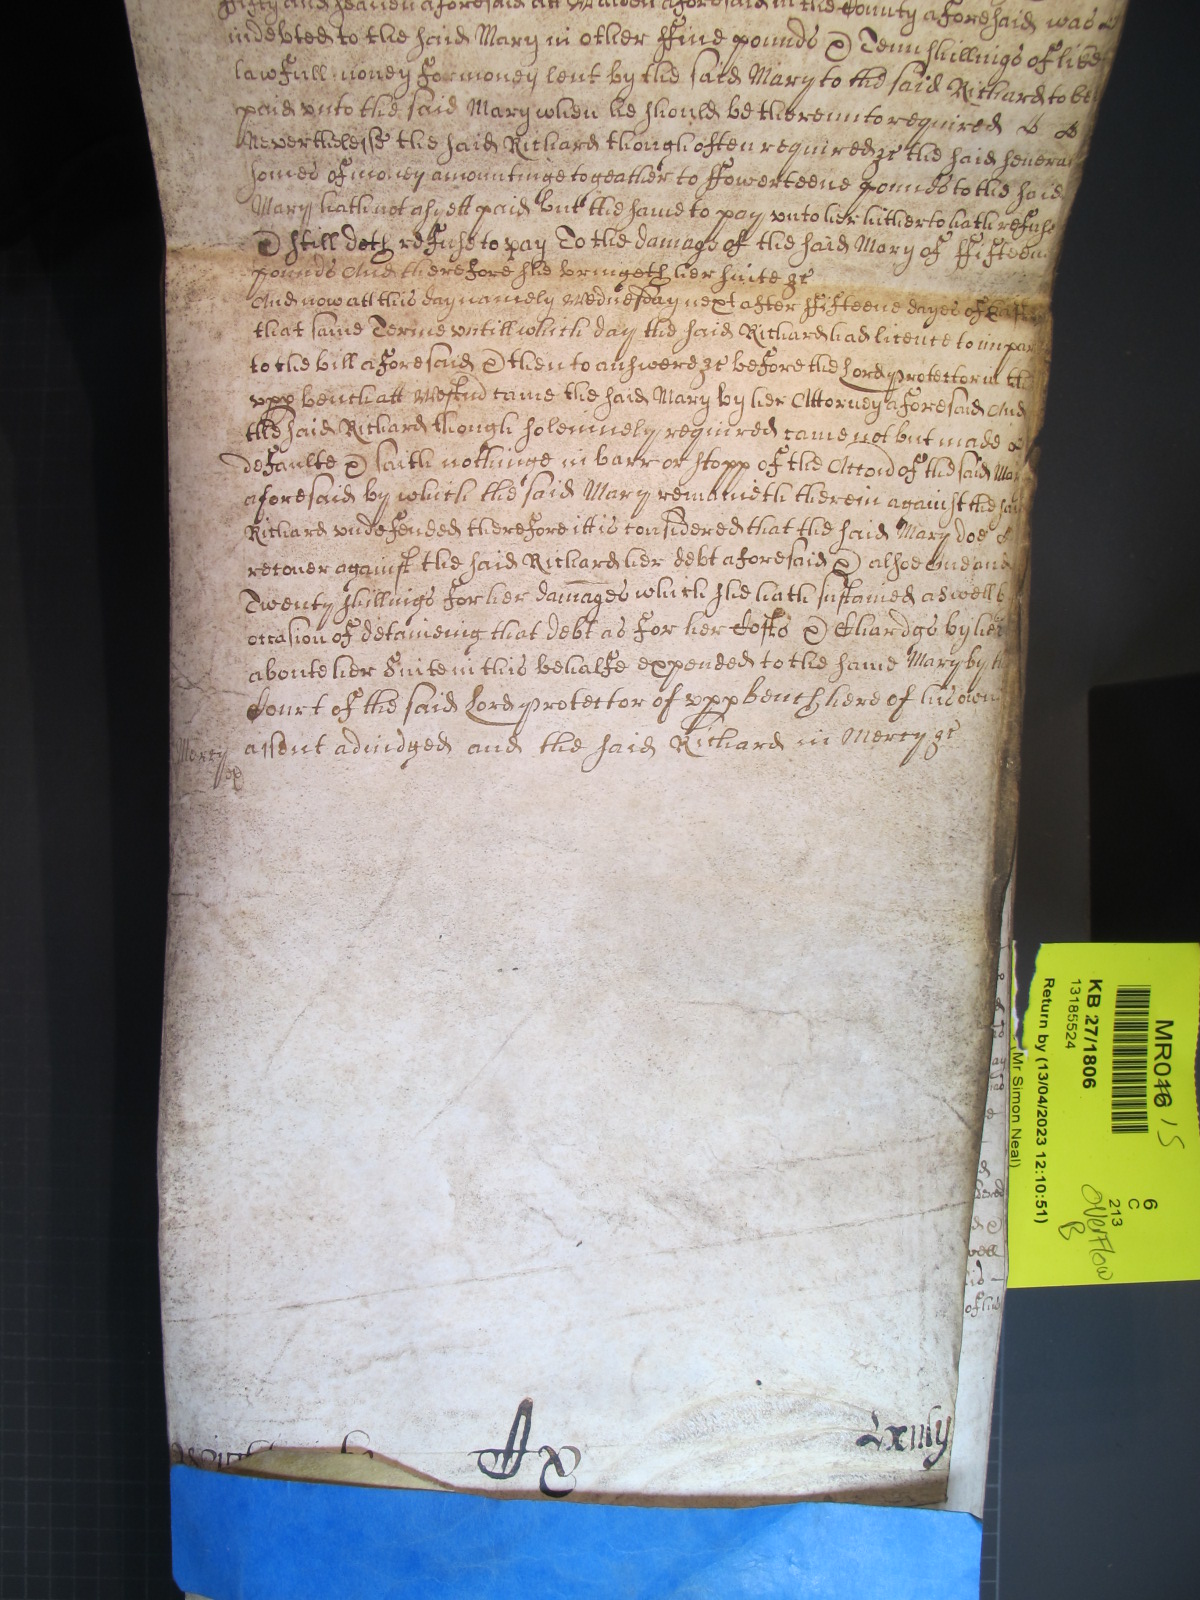 fifty and seaven aforesaid att Walden aforesaid in the County aforesaid was
indebted to the said Mary in other ffive pounds & Tenn shillings of like
lawfull money for money lent by the said Mary to the said Richard to be
paid vnto the said Mary when he should be thereunto required
Neverthelesse the said Richard though often required &c the said severall
somes of money amountinge togeather to ffowerteene pounds to the said
Mary hath not as yett paid but the same to pay vnto her hitherto hath refuse
& still doth refuse to pay To the damage of the said Mary of ffifteen
pounds And therefore she bringeth her suite &c
And now att this day namely Wednesday next after ffifteene dayes of Easter
that same Terme vntill which day the said Richard had licence to impar
to the bill aforesaid & then to answere &c before the Lord Protector in the
vpp bench att Westm̃ came the said Mary by her Attorney aforesaid And
the said Richard though solemnely required came not but made
defaulte & saith nothinge in barr or stopp of the Accoñ of the said Mar
aforesaid by which the said Mary remaineth therein against the said
Richard vndefended therefore itt is considered that the said Mary doe
recover against the said Richard her debt aforesaid & alsoe one and
Twenty shillings for her damages which she hath sustained as well by
occasion of deteineing that debt as for her Costs & Chardgs by her
aboute her Suite in this behalfe expended to the same Mary by the
Court of the said Lord Protector of vpp bench here of his owne
assent adiudged and the said Richard in Mercy &c
Mercy
Lxiiij
MR016 15
KB 27/1806
13185524
Return by (13/04/2023 12:10:51)
(Mr Simon Neal)
6
C
213
Overflow
B